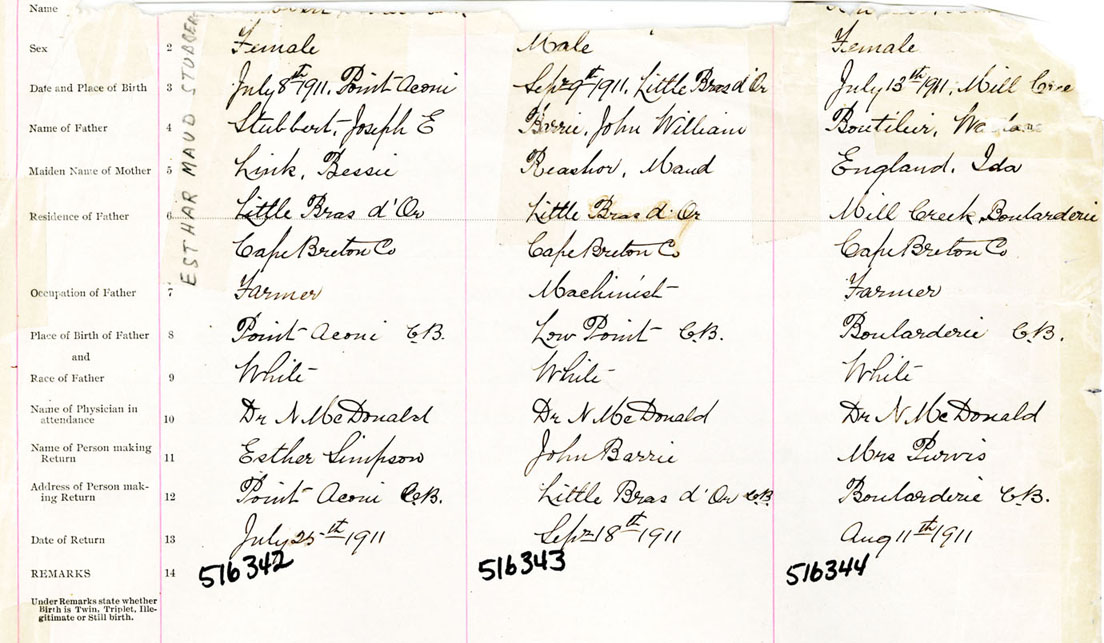 Name
Sex 2 Female Male Female
Date and Place of Birth 3 July 8th 1911. Point Aconi Sept 9th 1911, Little Bras d'Or July 13th 1911. Mill
Name of Father 4 Stubbert, Joseph E Barrie, John William Boutilier,
Maiden Name of Mother 5 Link, Bessie Reashor, Maud England, Ida
Residence of Father 6 Little Bras d'Or Little Bras d'Or Mill Creek Boularderie
Cape Breton Co Cape Breton Co Cape Breton Co
Occupation of Father 7 Farmer Machinist Farmer
Place of Birth of Father 8 Point Aconi C.B. Low Point C.B. Boularderie C.B.
and
Race of Father 9 White White White
Name of Physician in
attendance 10 Dr N McDonald Dr N McDonald Dr N McDonald
Name of Person making
Return 11 Esther Simpson John Barrie Mrs Purvis
Address of Person mak-
ing Return 12 Point Aconi C.B. Little Bras d'Or C.B. Boularderie C.B.
Date of Return 13 July 25th 1911 Sept 18th 1911 Aug 11th 1911
REMARKS 14 516342 516343 516344
Under Remarks state whether
Birth is Twin, Triplet, Ille-
gitimate or Still birth.
ESTHAR MAUD STUBBER